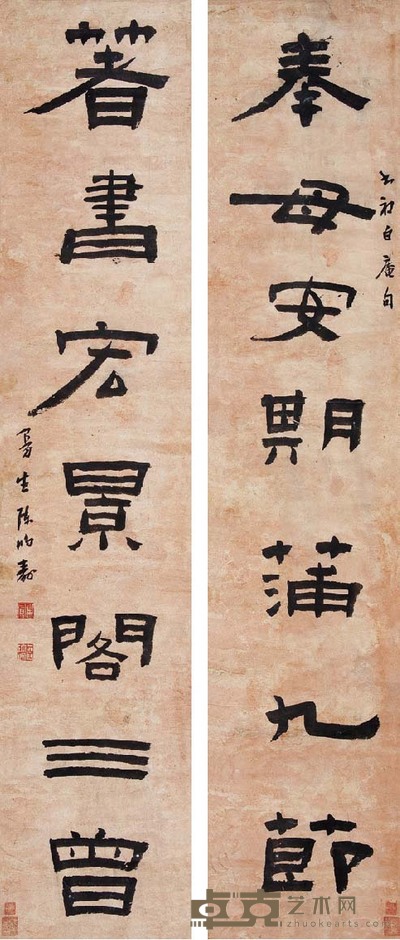 書初白庵句
奉母安期蒲九節
著書宏景閣三曾
曼生陳鴻壽
卓克艺术网
zhuokearts.com